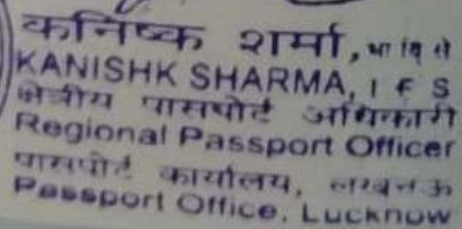 कनिष्क शर्मा, भा वि से
KANISHK SHARMA, I F S
क्षेत्रीय पासपोर्ट अधिकारी
Regional Passport Officer
पासपोर्ट कार्यालय, लखनऊ
Passport Office, Lucknow